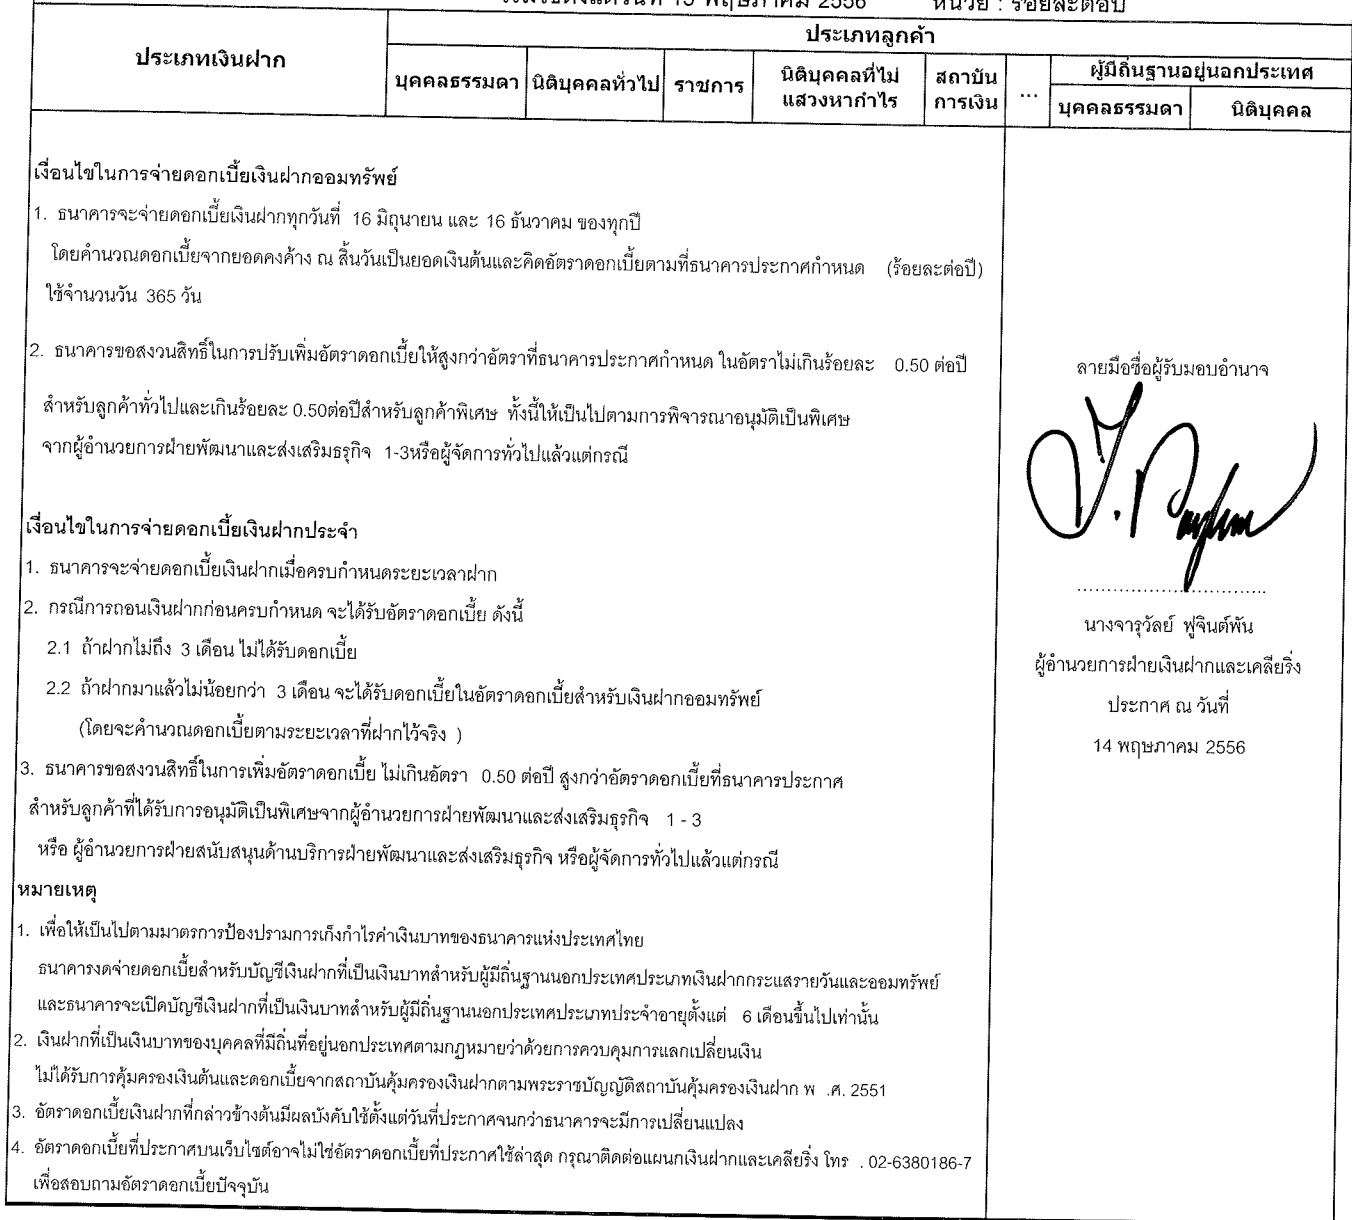 เริ่มใช้ตั้งแต่วันที่ 15 พฤษภาคม 2556 หน่วย : ร้อยละต่อปี
ประเภทเงินฝาก
ประเภทลูกค้า
บุคคลธรรมดา นิติบุคคลทั่วไป ราชการ นิติบุคคลที่ไม่แสวงหากำไร สถาบันการเงิน ... ผู้มีถิ่นฐานอยู่นอกประเทศ
บุคคลธรรมดา นิติบุคคล
เงื่อนไขในการจ่ายดอกเบี้ยเงินฝากออมทรัพย์
1. ธนาคารจะจ่ายดอกเบี้ยเงินฝากทุกวันที่ 16 มิถุนายน และ 16 ธันวาคม ของทุกปี
โดยคำนวณดอกเบี้ยจากยอดคงค้าง ณ สิ้นวันเป็นยอดเงินต้นและคิดอัตราดอกเบี้ยตามที่ธนาคารประกาศกำหนด (ร้อยละต่อปี)
ใช้จำนวนวัน 365 วัน
2. ธนาคารขอสงวนสิทธิ์ในการปรับเพิ่มอัตราดอกเบี้ยให้สูงกว่าอัตราที่ธนาคารประกาศกำหนด ในอัตราไม่เกินร้อยละ 0.50 ต่อปี
สำหรับลูกค้าทั่วไปและเกินร้อยละ 0.50ต่อปีสำหรับลูกค้าพิเศษ ทั้งนี้ให้เป็นไปตามการพิจารณาอนุมัติเป็นพิเศษ
จากผู้อำนวยการฝ่ายพัฒนาและส่งเสริมธรุกิจ 1-3หรือผู้จัดการทั่วไปแล้วแต่กรณี
เงื่อนไขในการจ่ายดอกเบี้ยเงินฝากประจำ
1. ธนาคารจะจ่ายดอกเบี้ยเงินฝากเมื่อครบกำหนดระยะเวลาฝาก
2. กรณีการถอนเงินฝากก่อนครบกำหนด จะได้รับอัตราดอกเบี้ย ดังนี้
2.1 ถ้าฝากไม่ถึง 3 เดือน ไม่ได้รับดอกเบี้ย
2.2 ถ้าฝากมาแล้วไม่น้อยกว่า 3 เดือน จะได้รับดอกเบี้ยในอัตราดอกเบี้ยสำหรับเงินฝากออมทรัพย์
(โดยจะคำนวณดอกเบี้ยตามระยะเวลาที่ฝากไว้จริง )
3. ธนาคารขอสงวนสิทธิ์ในการเพิ่มอัตราดอกเบี้ย ไม่เกินอัตรา 0.50 ต่อปี สูงกว่าอัตราดอกเบี้ยที่ธนาคารประกาศ
สำหรับลูกค้าที่ได้รับการอนุมัติเป็นพิเศษจากผู้อำนวยการฝ่ายพัฒนาและส่งเสริมธุรกิจ 1 - 3
หรือ ผู้อำนวยการฝ่ายสนับสนุนด้านบริการฝ่ายพัฒนาและส่งเสริมธุรกิจ หรือผู้จัดการทั่วไปแล้วแต่กรณี
หมายเหตุ
1. เพื่อให้เป็นไปตามมาตรการป้องปรามการเก็งกำไรค่าเงินบาทของธนาคารแห่งประเทศไทย
ธนาคารงดจ่ายดอกเบี้ยสำหรับบัญชีเงินฝากที่เป็นเงินบาทสำหรับผู้มีถิ่นฐานนอกประเทศประเภทเงินฝากกระแสรายวันและออมทรัพย์
และธนาคารจะเปิดบัญชีเงินฝากที่เป็นเงินบาทสำหรับผู้มีถิ่นฐานนอกประเทศประเภทประจำอายุตั้งแต่ 6 เดือนขึ้นไปเท่านั้น
2. เงินฝากที่เป็นเงินบาทของบุคคลที่มีถิ่นที่อยู่นอกประเทศตามกฎหมายว่าด้วยการควบคุมการแลกเปลี่ยนเงิน
ไม่ได้รับการคุ้มครองเงินต้นและดอกเบี้ยจากสถาบันคุ้มครองเงินฝากตามพระราชบัญญัติสถาบันคุ้มครองเงินฝาก พ .ศ. 2551
3. อัตราดอกเบี้ยเงินฝากที่กล่าวข้างต้นมีผลบังคับใช้ตั้งแต่วันที่ประกาศจนกว่าธนาคารจะมีการเปลี่ยนแปลง
4. อัตราดอกเบี้ยที่ประกาศบนเว็บไซต์อาจไม่ใช่อัตราดอกเบี้ยที่ประกาศใช้ล่าสุด กรุณาติดต่อแผนกเงินฝากและเคลียริ่ง โทร . 02-6380186-7
เพื่อสอบถามอัตราดอกเบี้ยปัจจุบัน
ลายมือชื่อผู้รับมอบอำนาจ
นางจารุวัลย์ ฟูจินต์พัน
ผู้อำนวยการฝ่ายเงินฝากและเคลียริ่ง
ประกาศ ณ วันที่
14 พฤษภาคม 2556